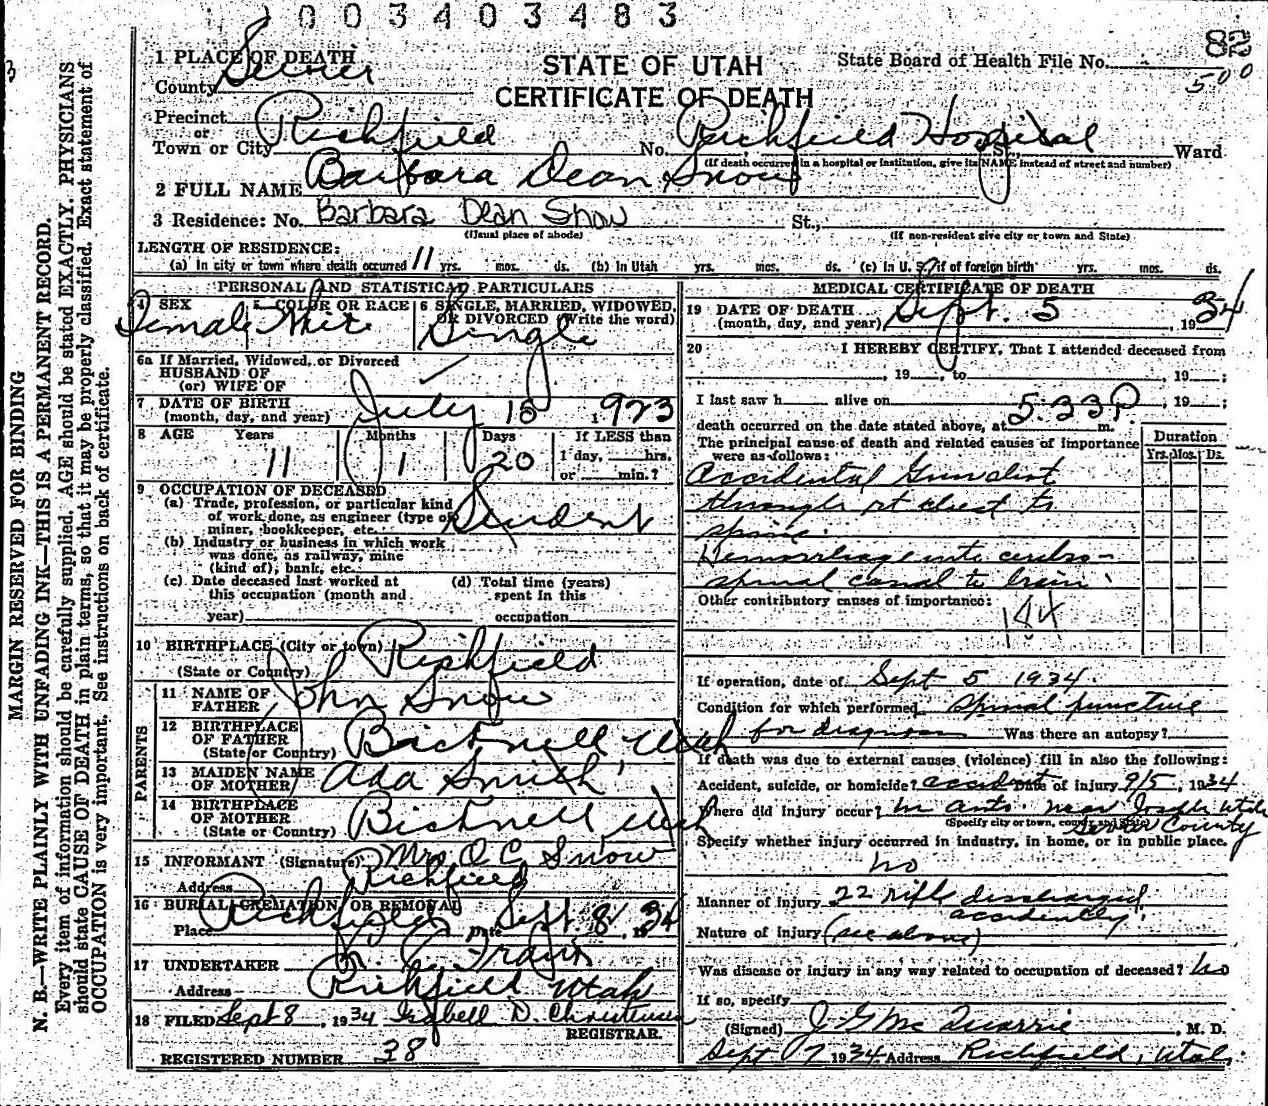 0 0 3 4 0 3 4 8 3
82
500
MARGIN RESERVED FOR BINDING
N. B.—WRITE PLAINLY WITH UNFADING INK—THIS IS A PERMANENT RECORD.
Every item of information should be carefully supplied. AGE should be stated EXACTLY. PHYSICIANS
should state CAUSE OF DEATH in plain terms, so that it may be properly classified. Exact statement of
OCCUPATION is very important. See instructions on back of certificate.
STATE OF UTAH
CERTIFICATE OF DEATH
State Board of Health File No.
1 PLACE OF DEATH
County Sevier
Precinct
or
Town or City Richfield No. Richfield Hospital St., Ward
(If death occurred in a hospital or institution, give its NAME instead of street and number)
2 FULL NAME Barbara Dean Snow
3 Residence: No. Barbara Dean Snow St.,
(Usual place of abode) (If non-resident give city or town and State)
LENGTH OF RESIDENCE:
(a) In city or town where death occurred 11 yrs. mos. ds. (b) In Utah yrs. mos. ds. (c) In U. S., if of foreign birth yrs. mos. ds.
PERSONAL AND STATISTICAL PARTICULARS
4 SEX Female
5 COLOR OR RACE White
6 SINGLE, MARRIED, WIDOWED,
OR DIVORCED (Write the word)
Single
6a If Married, Widowed, or Divorced
HUSBAND OF
(or) WIFE OF
7 DATE OF BIRTH
(month, day, and year) July 18 1923
8 AGE Years Months Days If LESS than
11 1 20 1 day, hrs.
or min.?
9 OCCUPATION OF DECEASED
(a) Trade, profession, or particular kind
of work done, as engineer (type of
miner, bookkeeper, etc. Student
(b) Industry or business in which work
was done, as railway, mine
(kind of), bank, etc.
(c) Date deceased last worked at
this occupation (month and
year)
(d) Total time (years)
spent in this
occupation
10 BIRTHPLACE (City or town) Richfield
(State or Country)
PARENTS
11 NAME OF
FATHER John Snow
12 BIRTHPLACE
OF FATHER
(State or Country) Bicknell Utah
13 MAIDEN NAME
OF MOTHER Ada Smith
14 BIRTHPLACE
OF MOTHER
(State or Country) Bicknell, Utah
15 INFORMANT (Signature) Mrs. O C Snow
Address Richfield
16 BURIAL, CREMATION OR REMOVAL
Place Richfield Date Sept. 8, 1934
17 UNDERTAKER
Address Richfield Utah
18 FILED Sept 8, 1934 Izabell D. Christensen
REGISTRAR.
REGISTERED NUMBER 28
MEDICAL CERTIFICATE OF DEATH
19 DATE OF DEATH
(month, day, and year) Sept. 5, 1934
20 I HEREBY CERTIFY, That I attended deceased from
, 19 , to , 19 ;
I last saw h alive on , 19 ;
death occurred on the date stated above, at 5:33 P m.
The principal cause of death and related causes of importance
were as follows:
Duration
Yrs. Mos. Ds.
Accidental Gunshot
through rt chest to
spine.
Hemorrhage into cerebro-
spinal canal to brain
Other contributory causes of importance:
If operation, date of Sept 5 1934.
Condition for which performed spinal puncture
for diagnosis Was there an autopsy?
If death was due to external causes (violence) fill in also the following:
Accident, suicide, or homicide? accident Date of injury 9/5, 1934
Where did injury occur? In auto. near Joseph Utah
(Specify city or town, county and State)
Sevier County
Specify whether injury occurred in industry, in home, or in public place.
no
Manner of injury .22 rifle discharged
accidently.
Nature of injury (see above)
Was disease or injury in any way related to occupation of deceased? No
If so, specify
(Signed) J G McQuarrie, M. D.
Sept 7 1934 Address Richfield, Utah.